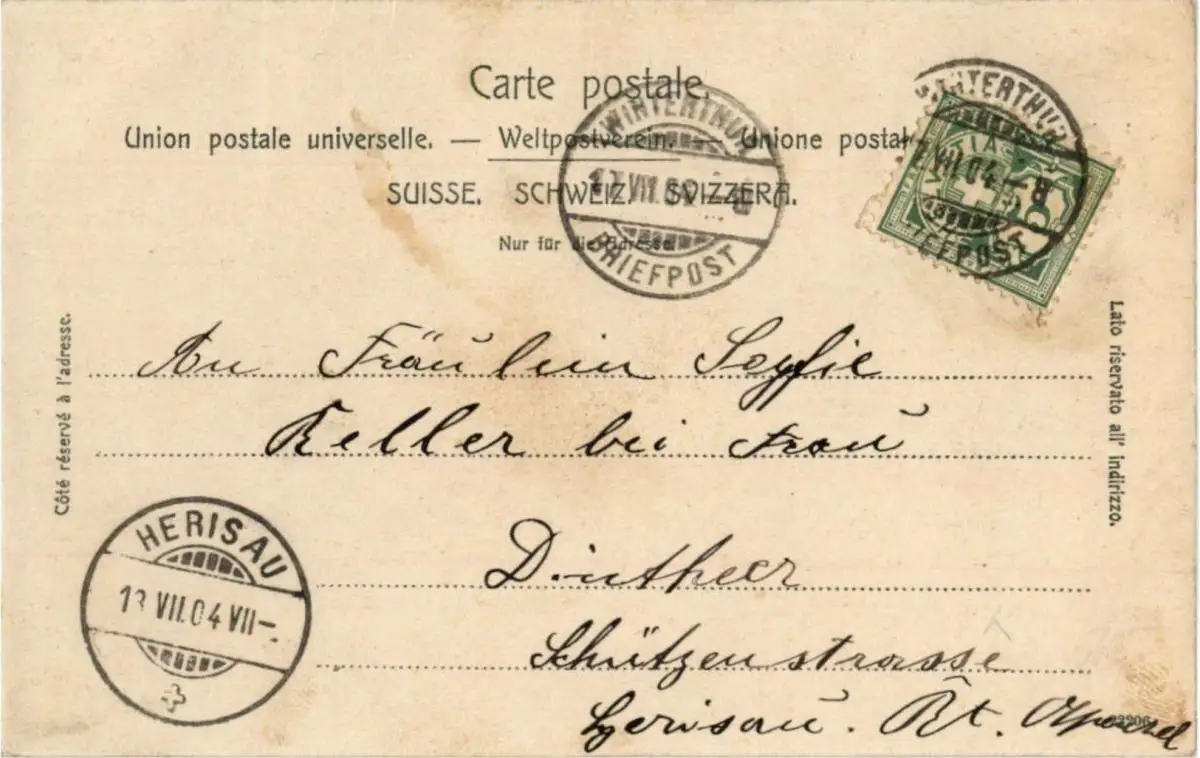 Carte postale.
Union postale universelle. — Weltpostverein. — Unione postal
SUISSE. SCHWEIZ. SVIZZERA.
Nur für die Adresse.
WINTERTHUR
VII.04
BRIEFPOST
WINTERTHUR
VII.04.–8
BRIEFPOST
Côté réservé à l'adresse.
Lato riservato all' indirizzo.
An Fräulein Sophie
Keller bei Frau
Dintheer
Schützenstrasse
Herisau. Kt. Appenzel
HERISAU
13 VII.04 VII–